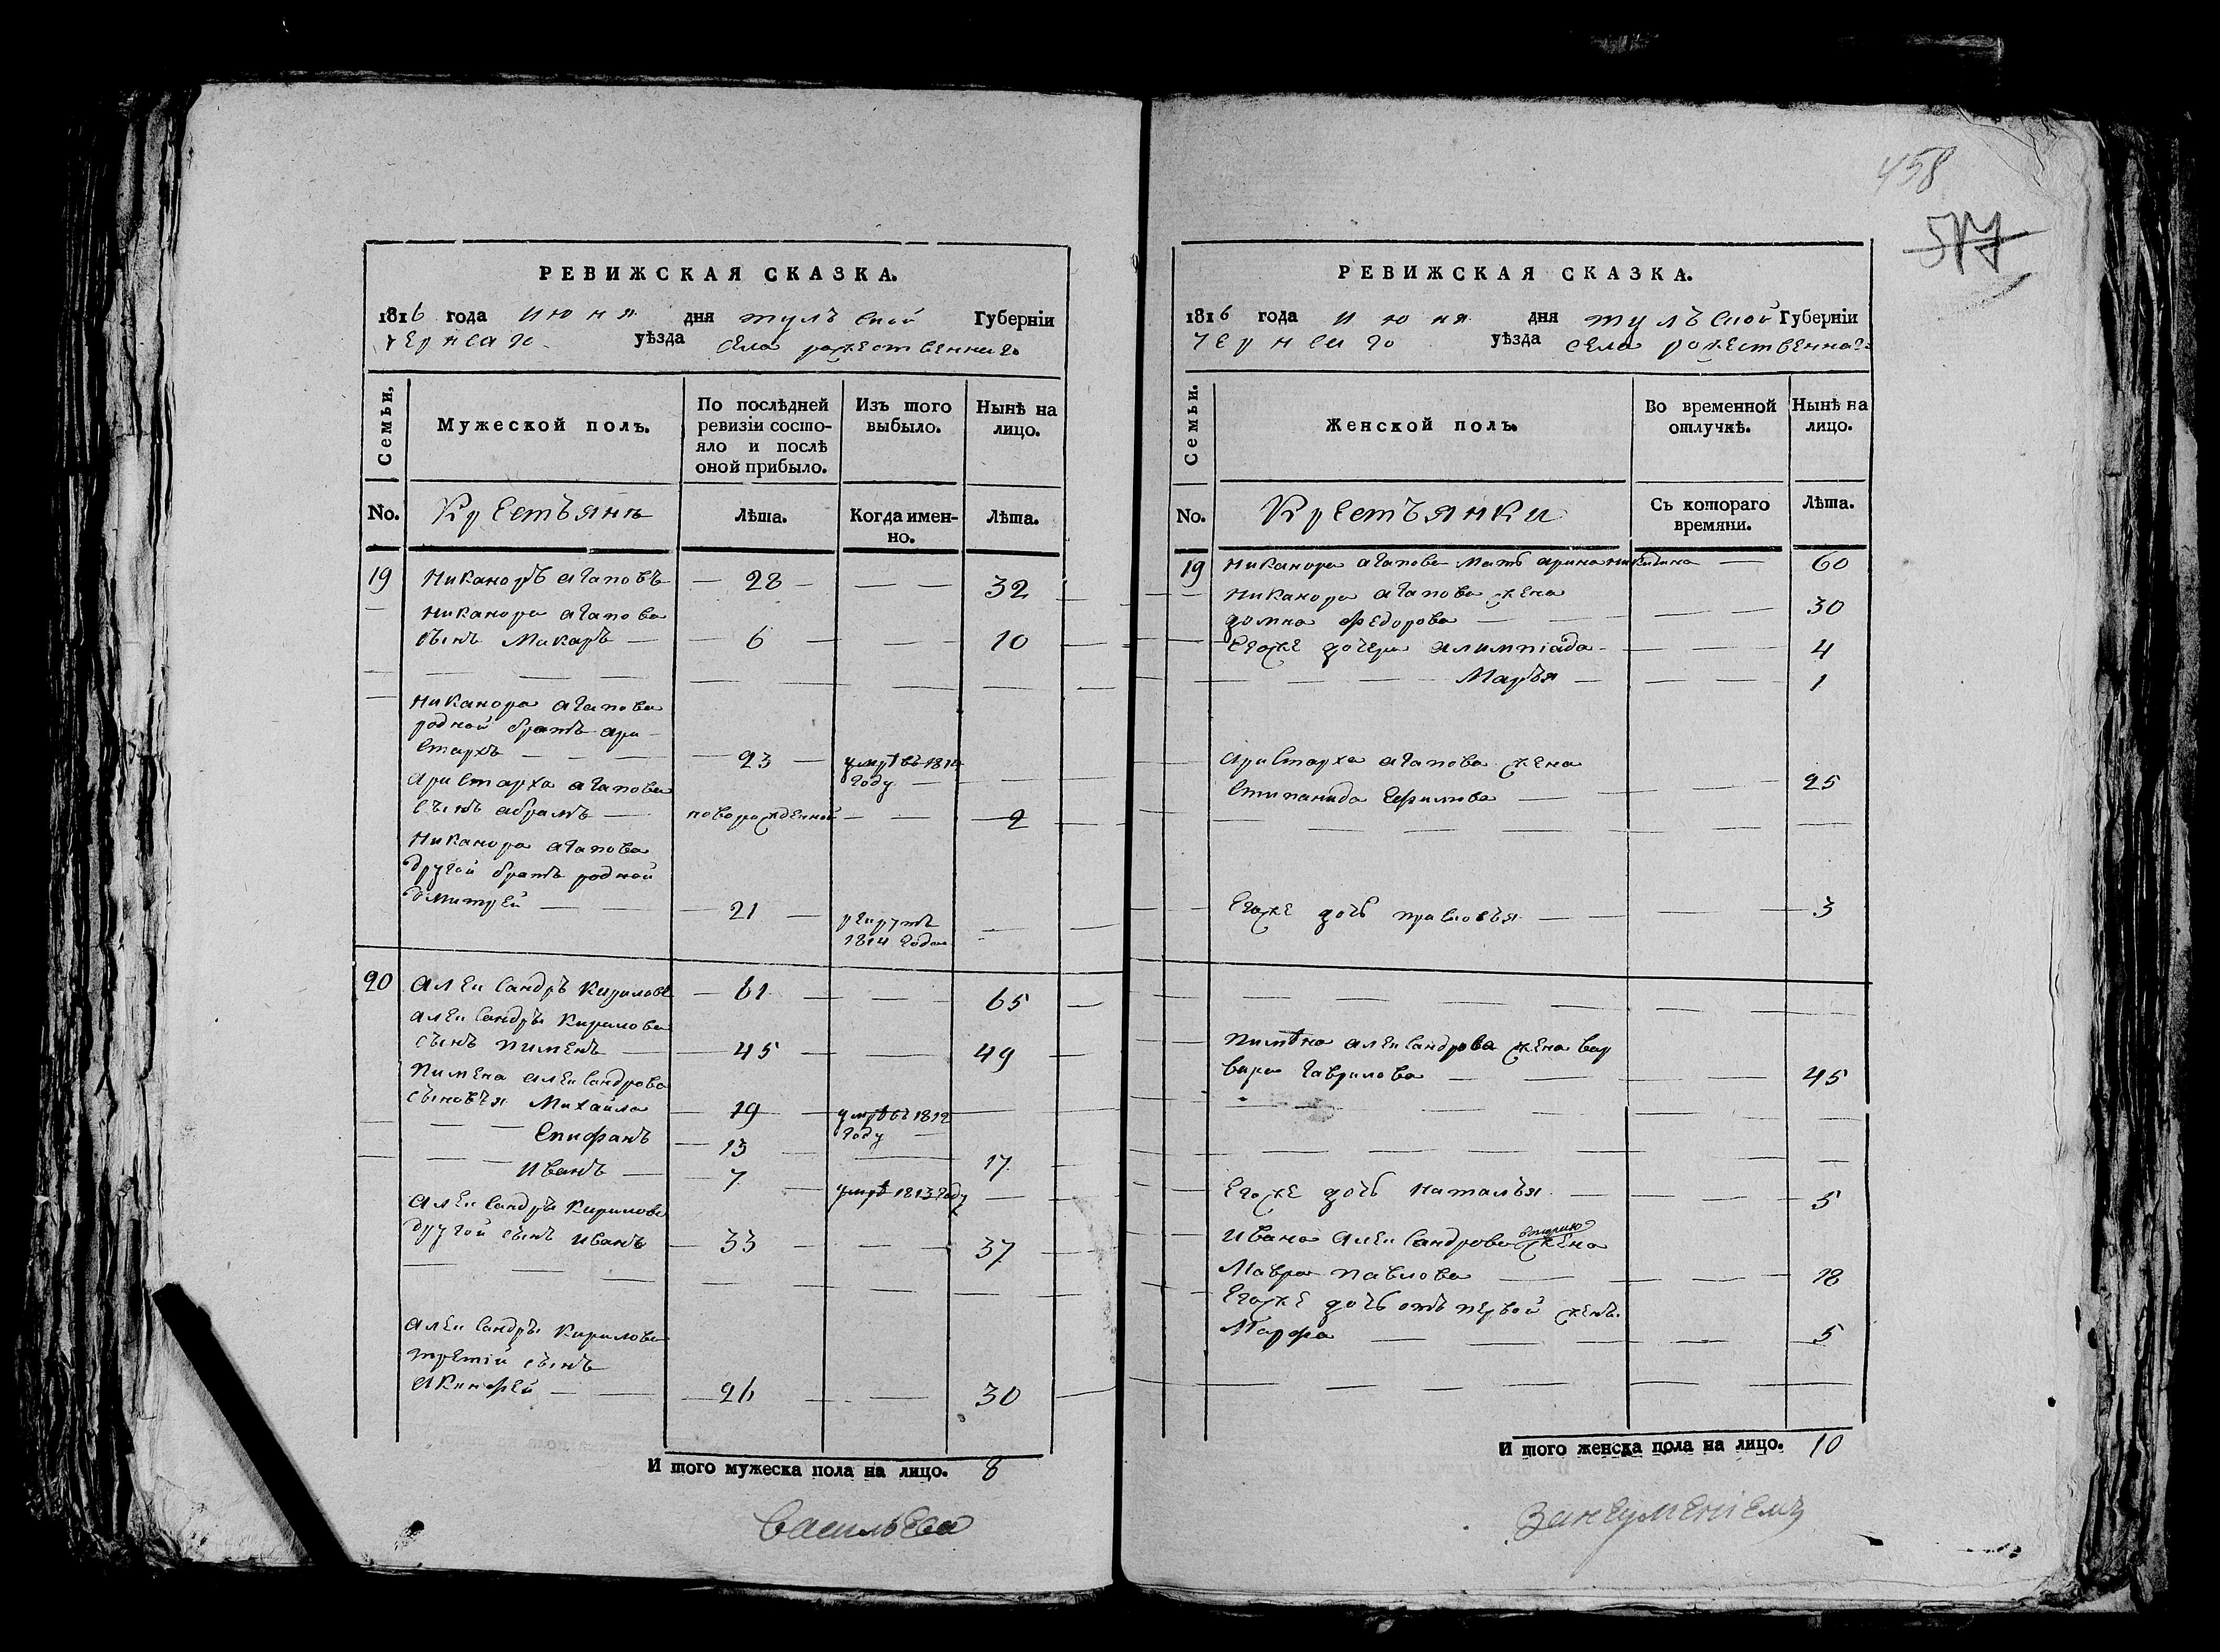 458
517
РЕВИЖСКАЯ СКАЗКА.
1816 года июня дня тульской Губерніи
чернскаго уѣзда села рожественнаго
Семьи,
Мужеской полъ.
По послѣдней ревизіи состо-
яло и послѣ
оной прибыло.
Изъ того выбыло.
Нынѣ на лицо.
No.
Крестьянъ
Лѣта.
Когда имен-
но.
Лѣта.
19 Никаноръ агаповъ 28 32
Никанора агапова
сынъ Макаръ 6 10
Никанора агапова
родной братъ ари
стархъ 23 умрѣ въ 1814
году
Аристарха агапова
сынъ абрамъ новорожденной 2
Никанора агапова
другой братъ родной
дмитрей 21 рекрутъ
1814 года
20 Александръ Кириловъ 61 65
Александръ Кирилова
сынъ пименъ 45 49
Пимена александрова
сыновья Михайла 19 умрѣ въ 1812
году
Епифанъ 13 17
Иванъ 7 умрѣ 1813 году
Александръ Кирилова
другой сынъ иванъ 33 37
Александръ Кирилова
третій сынъ
Акинфей 26 30
И того мужеска пола на лицо. 8
Васильева
РЕВИЖСКАЯ СКАЗКА.
1816 года июня дня тульской Губерніи
чернскаго уѣзда села рожественнаго
Семьи.
Женской полъ.
Во временной
отлучкѣ.
Нынѣ на
лицо.
No.
Крестьянки
Съ котораго
времяни.
Лѣта.
19 Никанора агапова мать арина никитина 60
Никанора агапова жена
домна федорова 30
Егоже дочери алимпіада 4
Марья 1
Аристарха агапова жена
Степанида Ефимова 25
Егоже дочь прасковья 3
Пимѣна александрова жена вар
вара гаврилова 45
Егоже дочь наталья 5
Ивана Александрова жена
Мавра павлова 18
Егоже дочь отъ первой жены
Марфа 5
И того женска пола на лицо. 10
Занеуменіемъ